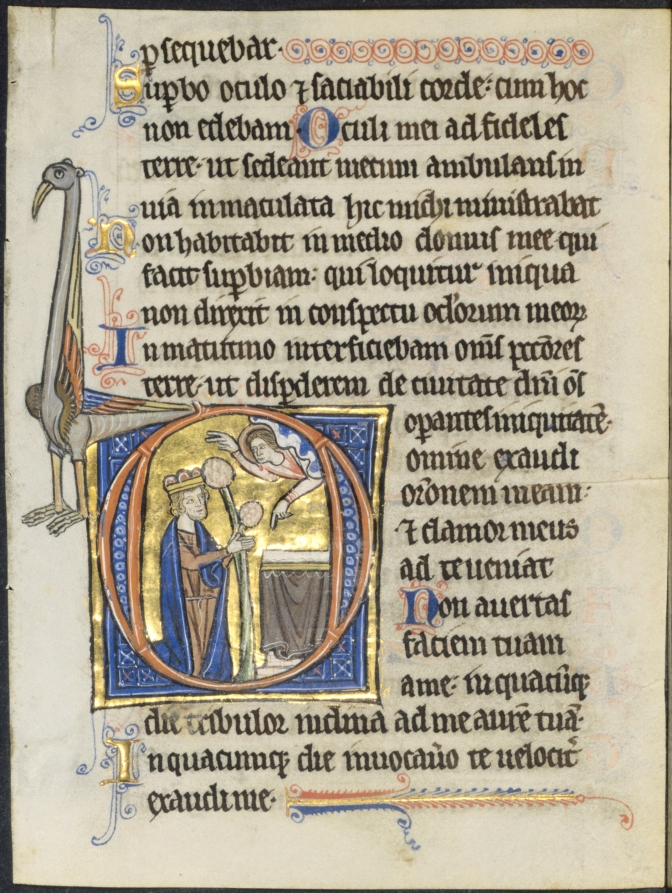 ꝑsequebar·
Suꝑbo oculo ⁊ saciabili corde: cum hoc
non edebam· Oculi mei ad fideles
terre· ut sedeant mecum ambulans in
uia inmaculata hic michi ministrabat
Non habitabit in medio domus mee· qui
facit suꝑbiam: qui loquitur iniqua
non direxit in conspectu oc̄lorum meoꝝ
In matutino interficiebam om̄s pctōres
terre· ut disꝑderem de ciuitate dn̄i om̄s
oꝑantes iniquitatē·
Domine exaudi
or̄onem meam·
⁊ clamor meus
ad te ueniat
Non auertas
faciem tuam
a me· in quacūqꝫ
die tribulor inclina ad me aurē tuā·
In quacumqꝫ die inuocau̅o te uelocit᷑
exaudi me·